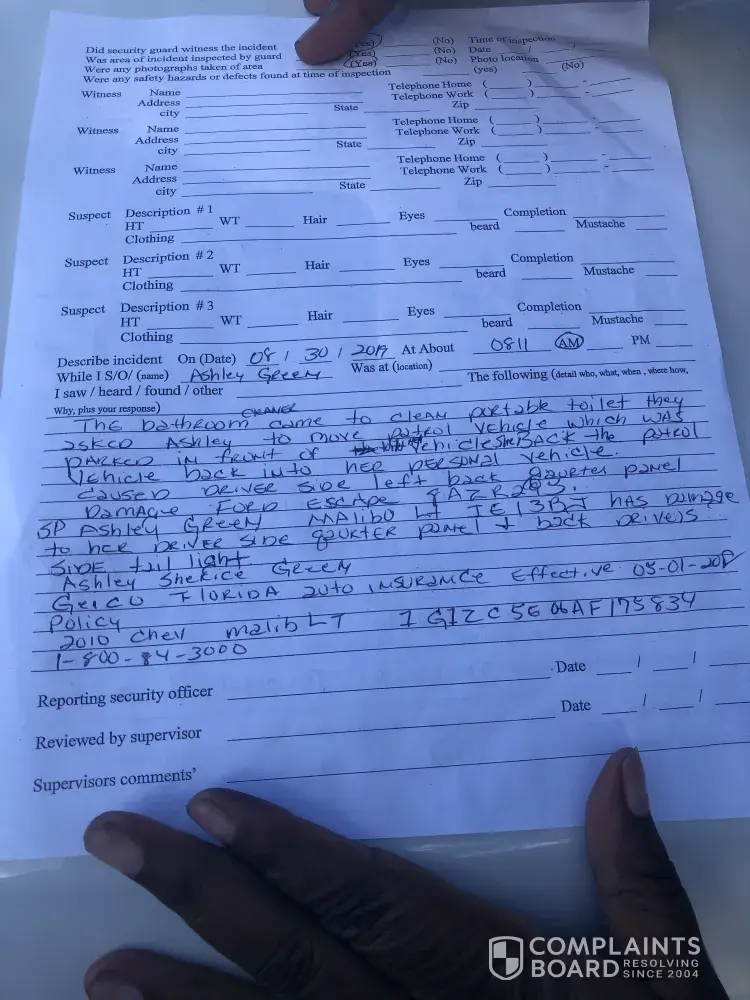 Did security guard witness the incident (Yes) (No) Time of inspection
Was area of incident inspected by guard (Yes) (No) Date / /
Were any photographs taken of area (Yes) (No) Photo location
Were any safety hazards or defects found at time of inspection (yes) (No)
Witness Name Telephone Home ( ) -
Address Telephone Work ( ) -
city State Zip
Witness Name Telephone Home ( ) -
Address Telephone Work ( ) -
city State Zip
Witness Name Telephone Home ( ) -
Address Telephone Work ( ) -
city State Zip
Suspect Description # 1
HT WT Hair Eyes Completion
Clothing beard Mustache
Suspect Description # 2
HT WT Hair Eyes Completion
Clothing beard Mustache
Suspect Description # 3
HT WT Hair Eyes Completion
Clothing beard Mustache
Describe incident On (Date) 08 / 30 / 2019 At About 0811 AM PM
While I S/O/ (name) Ashley Green Was at (location) The following (detail who, what, when , where how,
I saw / heard / found / other
Why, plus your response)
The bathroom came to clean portable toilet they
asked Ashley to move patrol vehicle which was
parked in front of vehicle she back the patrol
vehicle back into her personal vehicle.
caused driver side left back qaurter panel
Damage Ford Escape
SP Ashley Green Malibu LT IE13BJ has damage
to her driver side qaurter panel + back drivers
side tail light.
Ashley Sherice Green
Geico Florida auto insurance Effective 05-01-
Policy
2010 Chev malib LT 1G1ZC5E06AF175834
1-800-84-3000
Reporting security officer Date / /
Reviewed by supervisor Date / /
Supervisors comments'
COMPLAINTS
BOARD RESOLVING
SINCE 2004